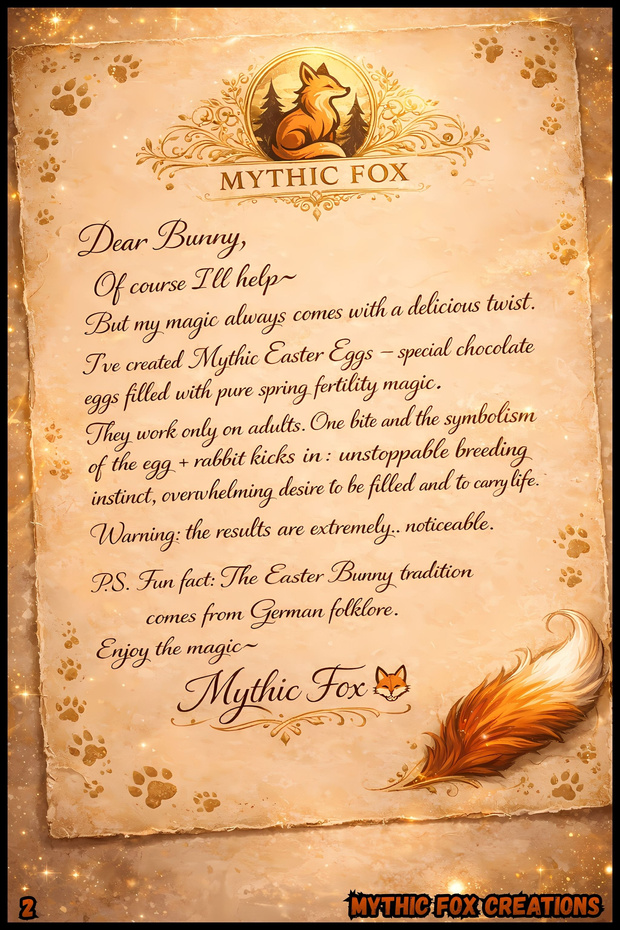 MYTHIC FOX
Dear Bunny,
Of course I'll help~
But my magic always comes with a delicious twist.
I've created Mythic Easter Eggs – special chocolate
eggs filled with pure spring fertility magic.
They work only on adults. One bite and the symbolism
of the egg + rabbit kicks in: unstoppable breeding
instinct, overwhelming desire to be filled and to carry life.
Warning: the results are extremely.. noticeable.
P.S. Fun fact: The Easter Bunny tradition
comes from German folklore.
Enjoy the magic~
Mythic Fox
2
MYTHIC FOX CREATIONS